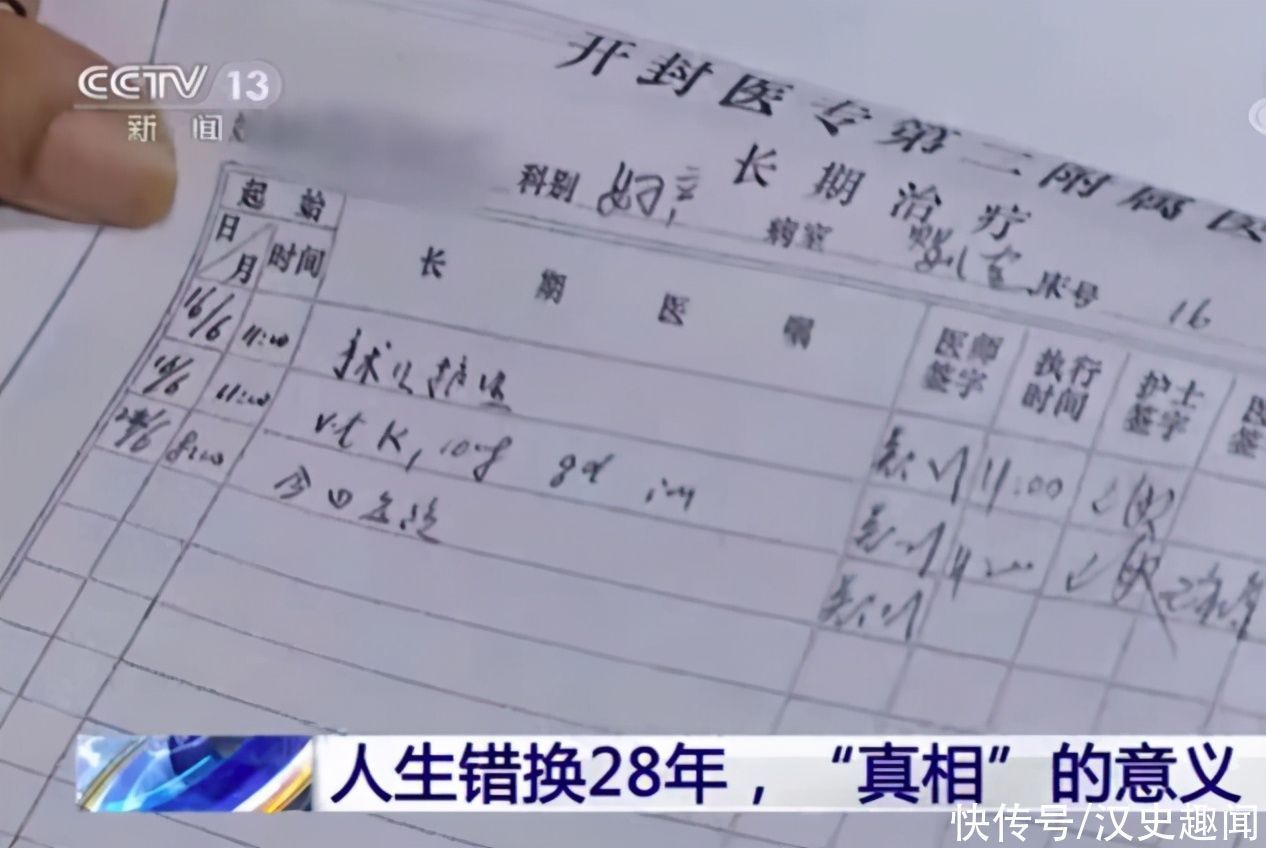 CCTV 13
新闻
开封医专第二附属医
长期治疗
科别 妇产 病室 婴儿室 床号 16
起始
日/月 时间 长期医嘱 医师签字 执行时间 护士签字
16/6 11:00 11:00
16/6 11:00 Vit K1 10mg qd im
8:00 今日出院
人生错换28年，“真相”的意义
快传号/汉史趣闻